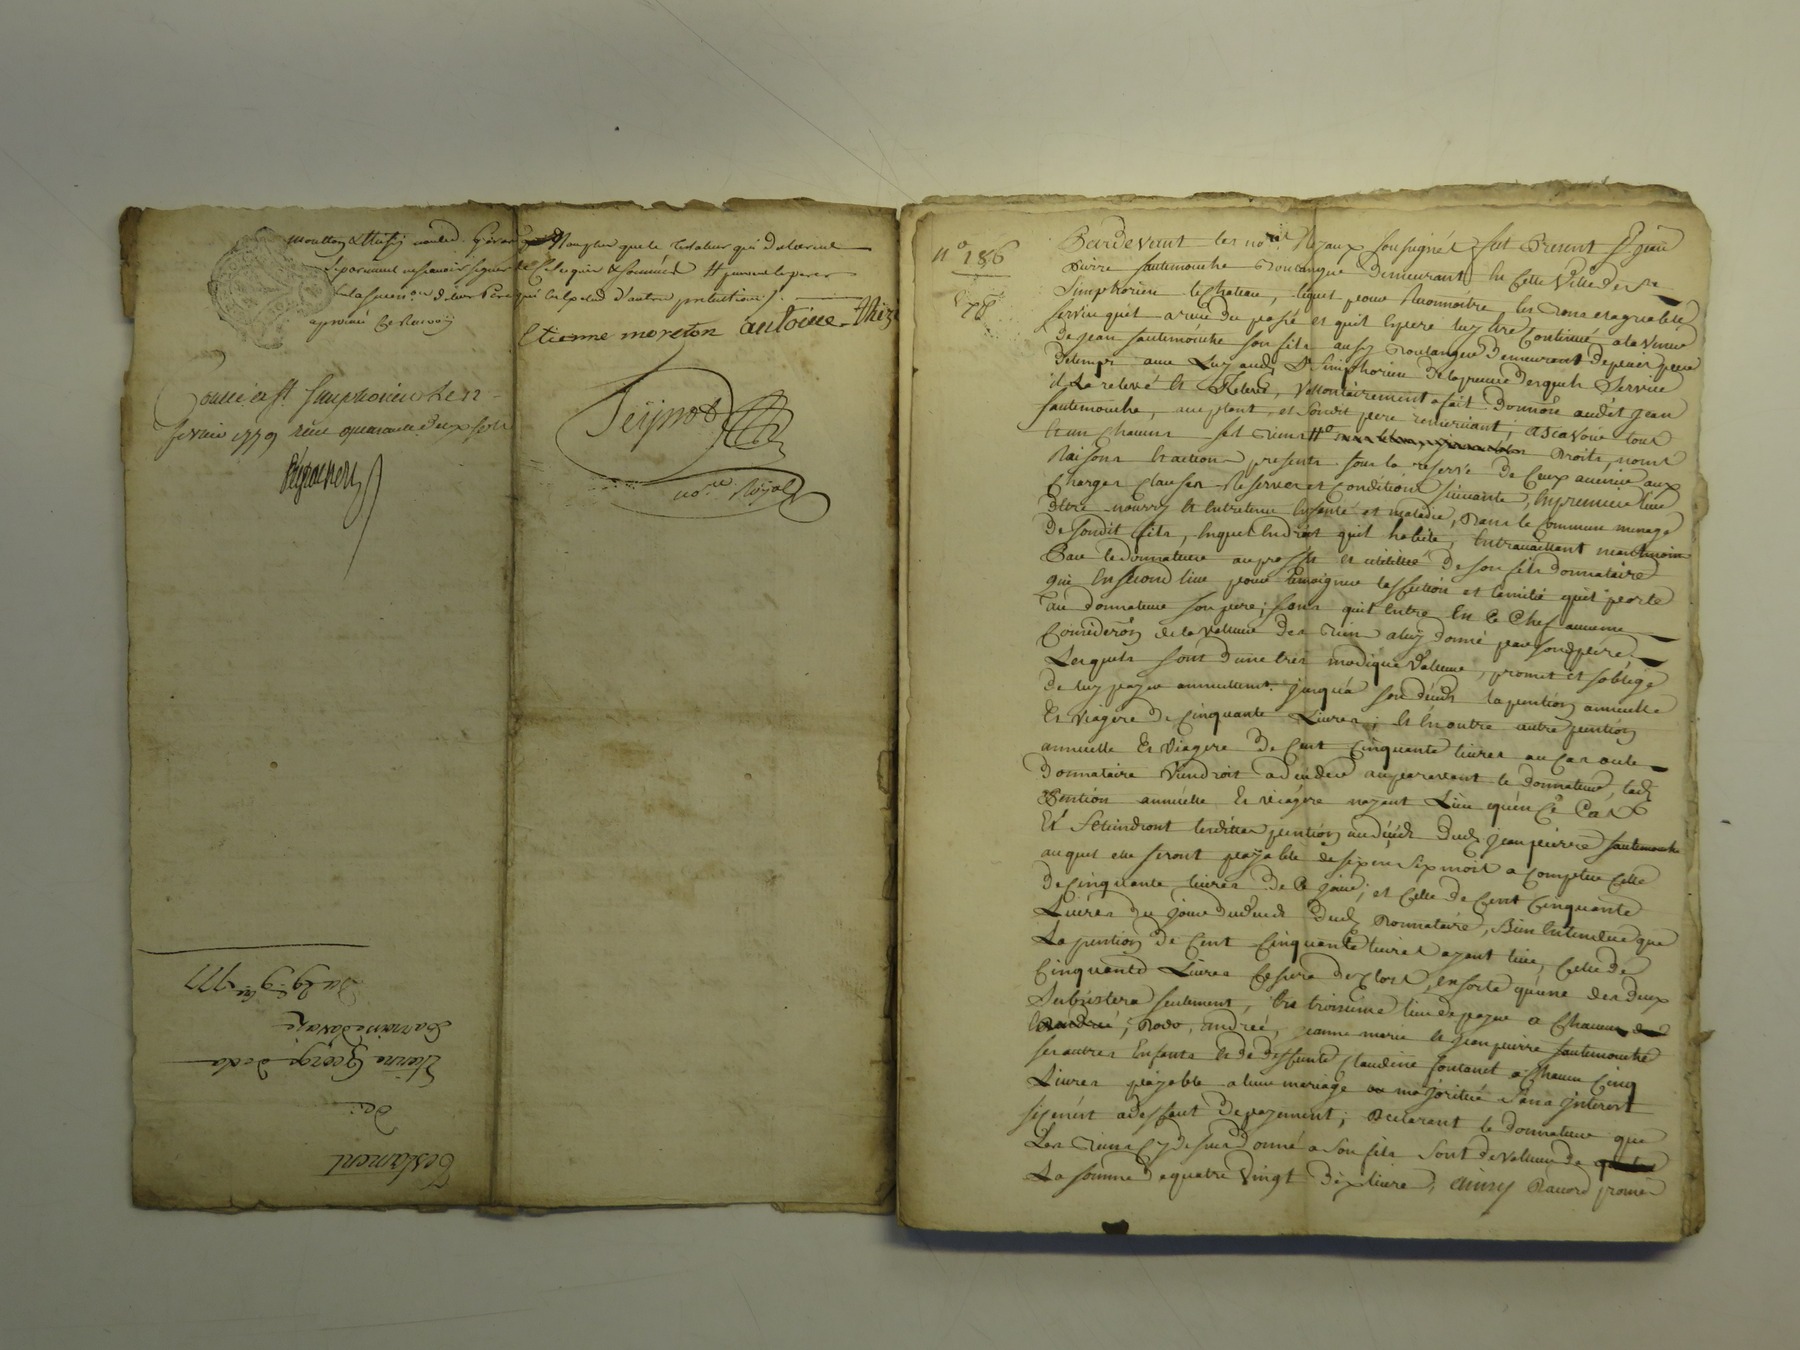 moulton & thisy ausd. Gérard
approuvé ce renvoy
que le testateur qui a declaré
Separement ne scavoir signer de ce requis & sommés
Controllé a St. Simphorien le 22
fevrier 1779 reçu quarante deux sols
Etienne moreton antoine thizi
Peyssot
nore. Royal
Testament
de
Etienne George dede
Du 29 9bre 1777
n° 186
Pardevant les nores Royaux soussignés fut Present Sr jean
Pierre sautemouche Boulanger demeurant En Cette Ville de St
Simphorien le chateau, lequel pour Reconnoitre les Bons et agreables
services quil a reçu du passé et quil Espere luy être Continué a la venir
de jean sautemouche son fils aussy Boulanger demeurant depuis peu
de temps avec Luy aud. St Simphorien de la preuve desquels Services
il La relevé et Releve, Volontairement a fait donnôn audit jean
sautemouche, acceptant, et sondit pere remerciant, ascavoir tous
et un chacuns ses Biens Droits, noms
Raisons et actions presents sous la reserve de Ceux avenir aux
Charges Clauses Reserves et Conditions suivante, En premier lieu
d'être nourry et Entretenu En santé et maladie, dans le Commun menage
de sondit fils, En quel Endroit quil habite, En travaillant neantmoins
Par le donnateur au proffit et utillité de son fils donnataire
qui En second lieu pour temoigner laffection et lamitié quil porte
au donnateur son pere, sans quil Entre En Ce Chef aucune
Consideron de la valleur des Biens a luy donné par sond. pere
Lesquels sont d'une tres modique Valleur, promet et soblige
de luy payer annuellemt. jusqu'a son décès la pention annuelle
Et Viagere de Cinquante Livres; Et En outre autre pention
annuelle Et Viagere de Cent Cinquante livres au Cas ou le
Donnataire Viendroit a deceder auparavant le donnateur, lad.
Pention annuelle Et viagére nayant Lieu qu'en Ce Cas
Et S'eteindront lesdites pention au décès dud. jean pierre sautemouche
auquel elle seront payable de six en six mois a Compter Celle
de Cinquante livres de Ce jour; et Celle de Cent Cinquante
Livres du jour du décès dud. Donnataire, Bien Entendu que
La pention de Cent Cinquante livres ayant lieu, Celle de
Cinquante Livres Cessera des lors, En sorte qu'une des deux
Subsistera seulement, En troisieme lieu de payer a Chacun
andrée, jeanne marie et jean pierre sautemouche
ses autres Enfants et de deffunte Claudine a Chacun Cinq
Livres payable a leur mariage ou majôritée sans jnterest
si ce n'est a deffaut de payement; Declarant le donnateur que
Les Biens Cy dessus donné a son fils sont de valleur de
La somme de quatre Vingt dix livre, ainsy Daccord promis